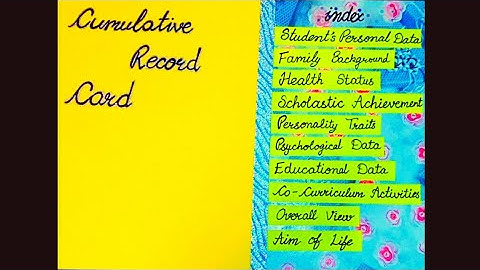 Cumulative
Record
Card
index
Student's Personal Data
Family Background
Health Status
Scholastic Achievement
Personality Traits
Psychological Data
Educational Data
Co-Curriculum Activities
Overall View
Aim of Life